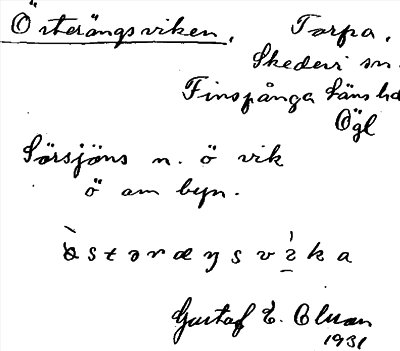 Österängsviken.
Torpa.
Skedevi sn.
Finspånga läns hd
Ögl
Sörsjöns n. ö vik
ö om byn.
Gustaf E.
1931